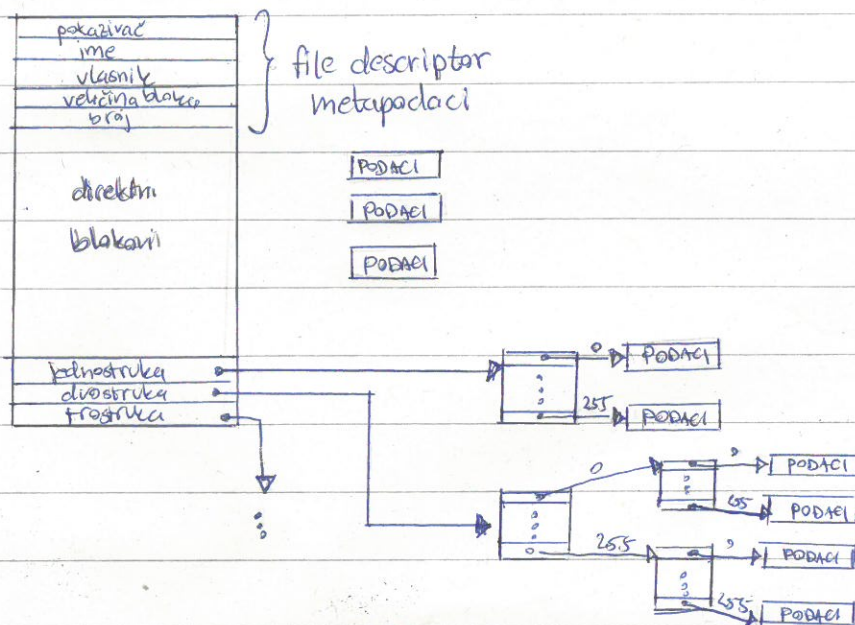 pokazivač
ime
vlasnik
veličina bloka
broj
file descriptor
metapodaci
direktni
blokovi
PODACI
PODACI
PODACI
jednostruka
dvostruka
trostruka
0
PODACI
255
PODACI
0
0
PODACI
255
PODACI
255
0
PODACI
255
PODACI